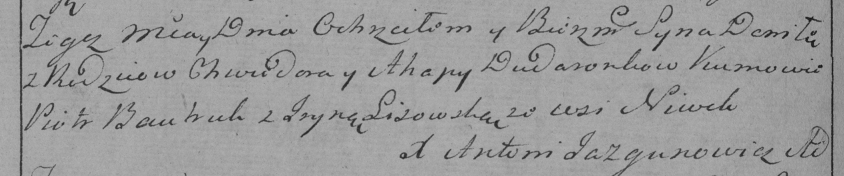 Tegoż Mca y Dnia Ochrzciłem y Bierzm Syna Daniłę
z Rodzicow Chwiedora y Ahapy Dudaronkow Kumowie
Piotr Bautruk z Iryną Lisowską ze wsi Niwek
X Antoni Jazgunowicz AD